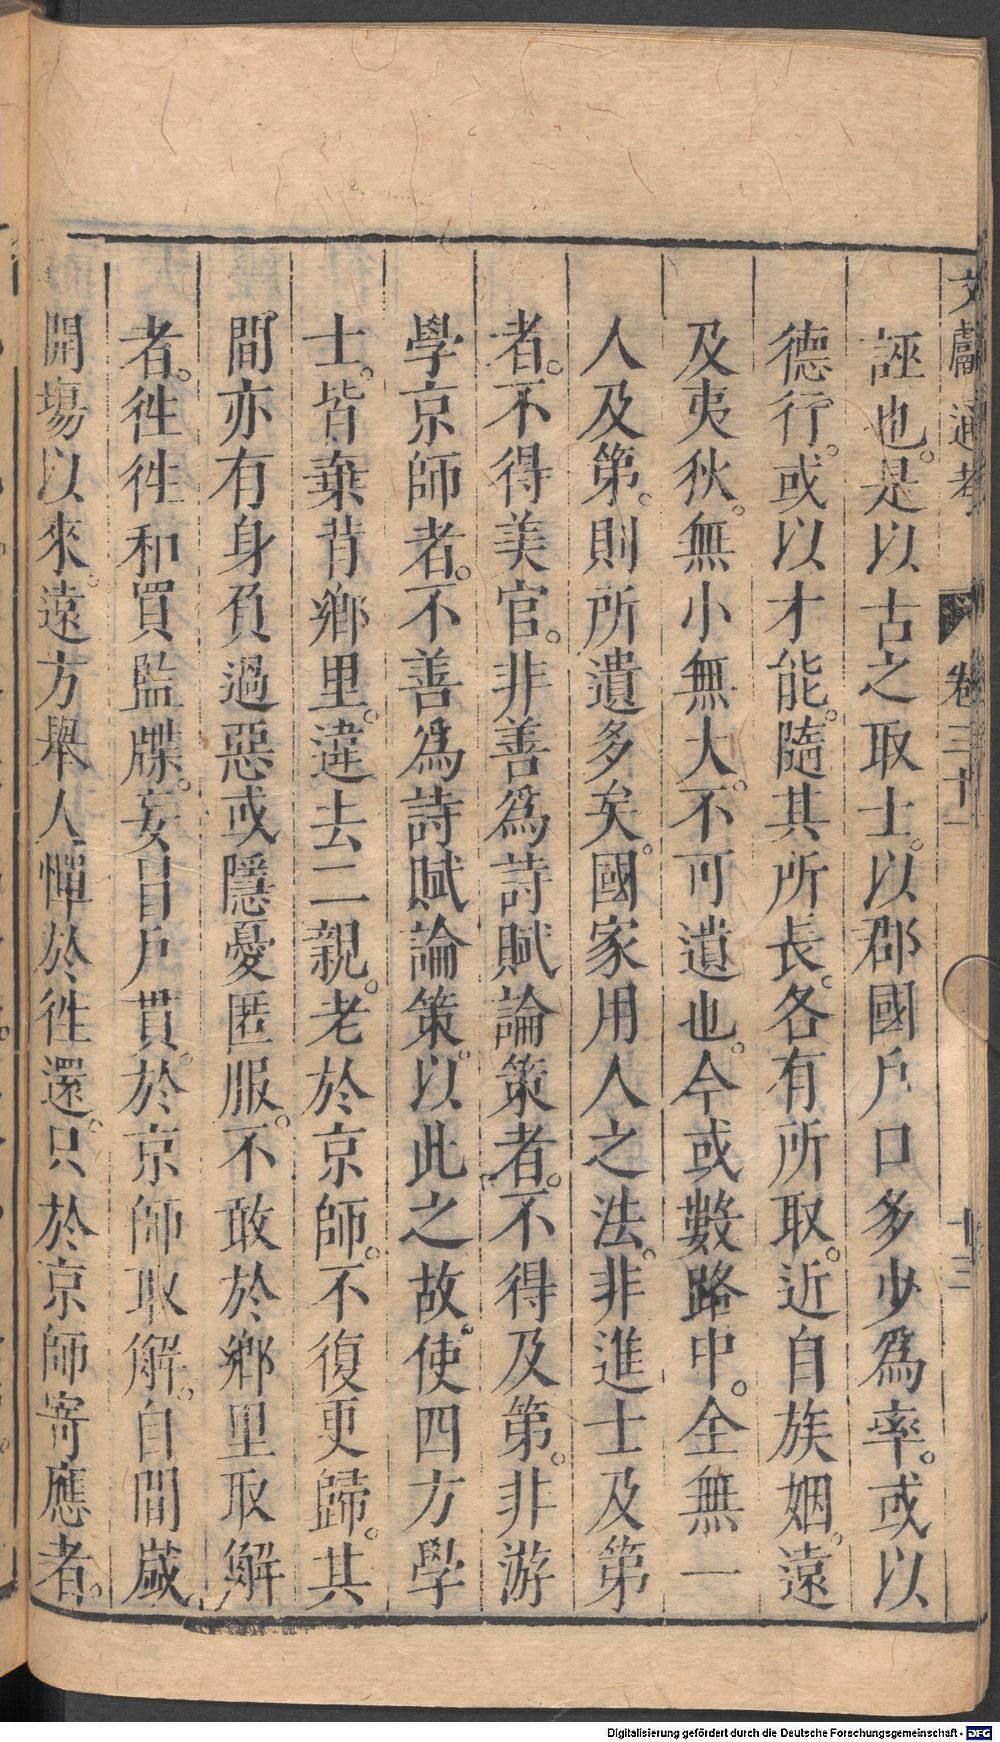 文獻通考 卷三十一 十三
誣也。是以古之取士。以郡國戶口多少爲率。或以
德行。或以才能。隨其所長。各有所取。近自族姻。遠
及夷狄。無小無大。不可遺也。今或數路中。全無一
人及第。則所遺多矣。國家用人之法。非進士及第
者。不得美官。非善爲詩賦論策者。不得及第。非游
學京師者。不善爲詩賦論策。以此之故。使四方學
士。皆棄背鄉里。違去二親。老於京師。不復更歸。其
間亦有身負過惡或隱憂匿服。不敢於鄉里取解
者。徃徃私買監牒。妄冒戶貫。於京師取解。自間歲
開場以來。遠方舉人憚於徃還。只於京師寄應者。
Digitalisierung gefördert durch die Deutsche Forschungsgemeinschaft - DFG